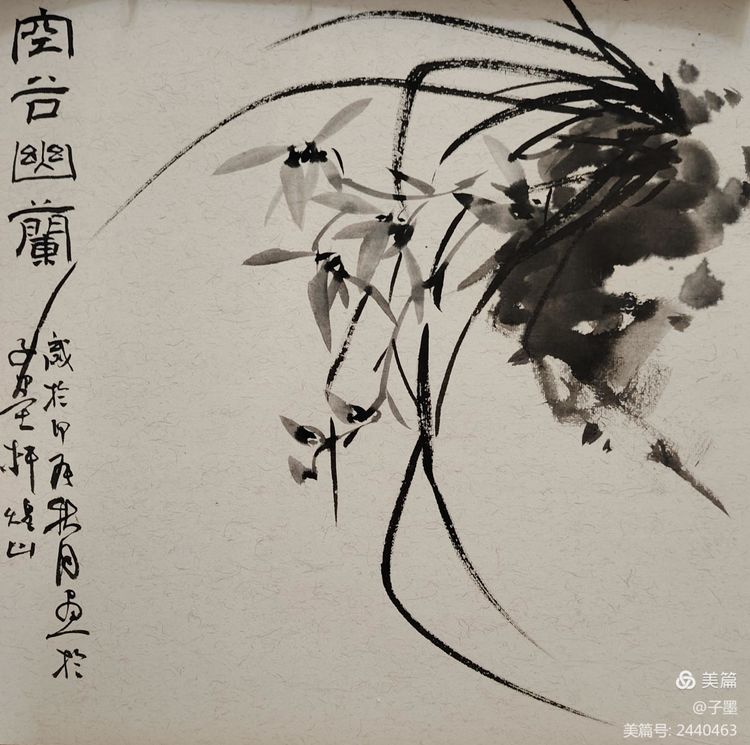 空谷幽蘭
歲於甲辰秋月画於
子墨軒
美篇
@子墨
美篇号: 2440463